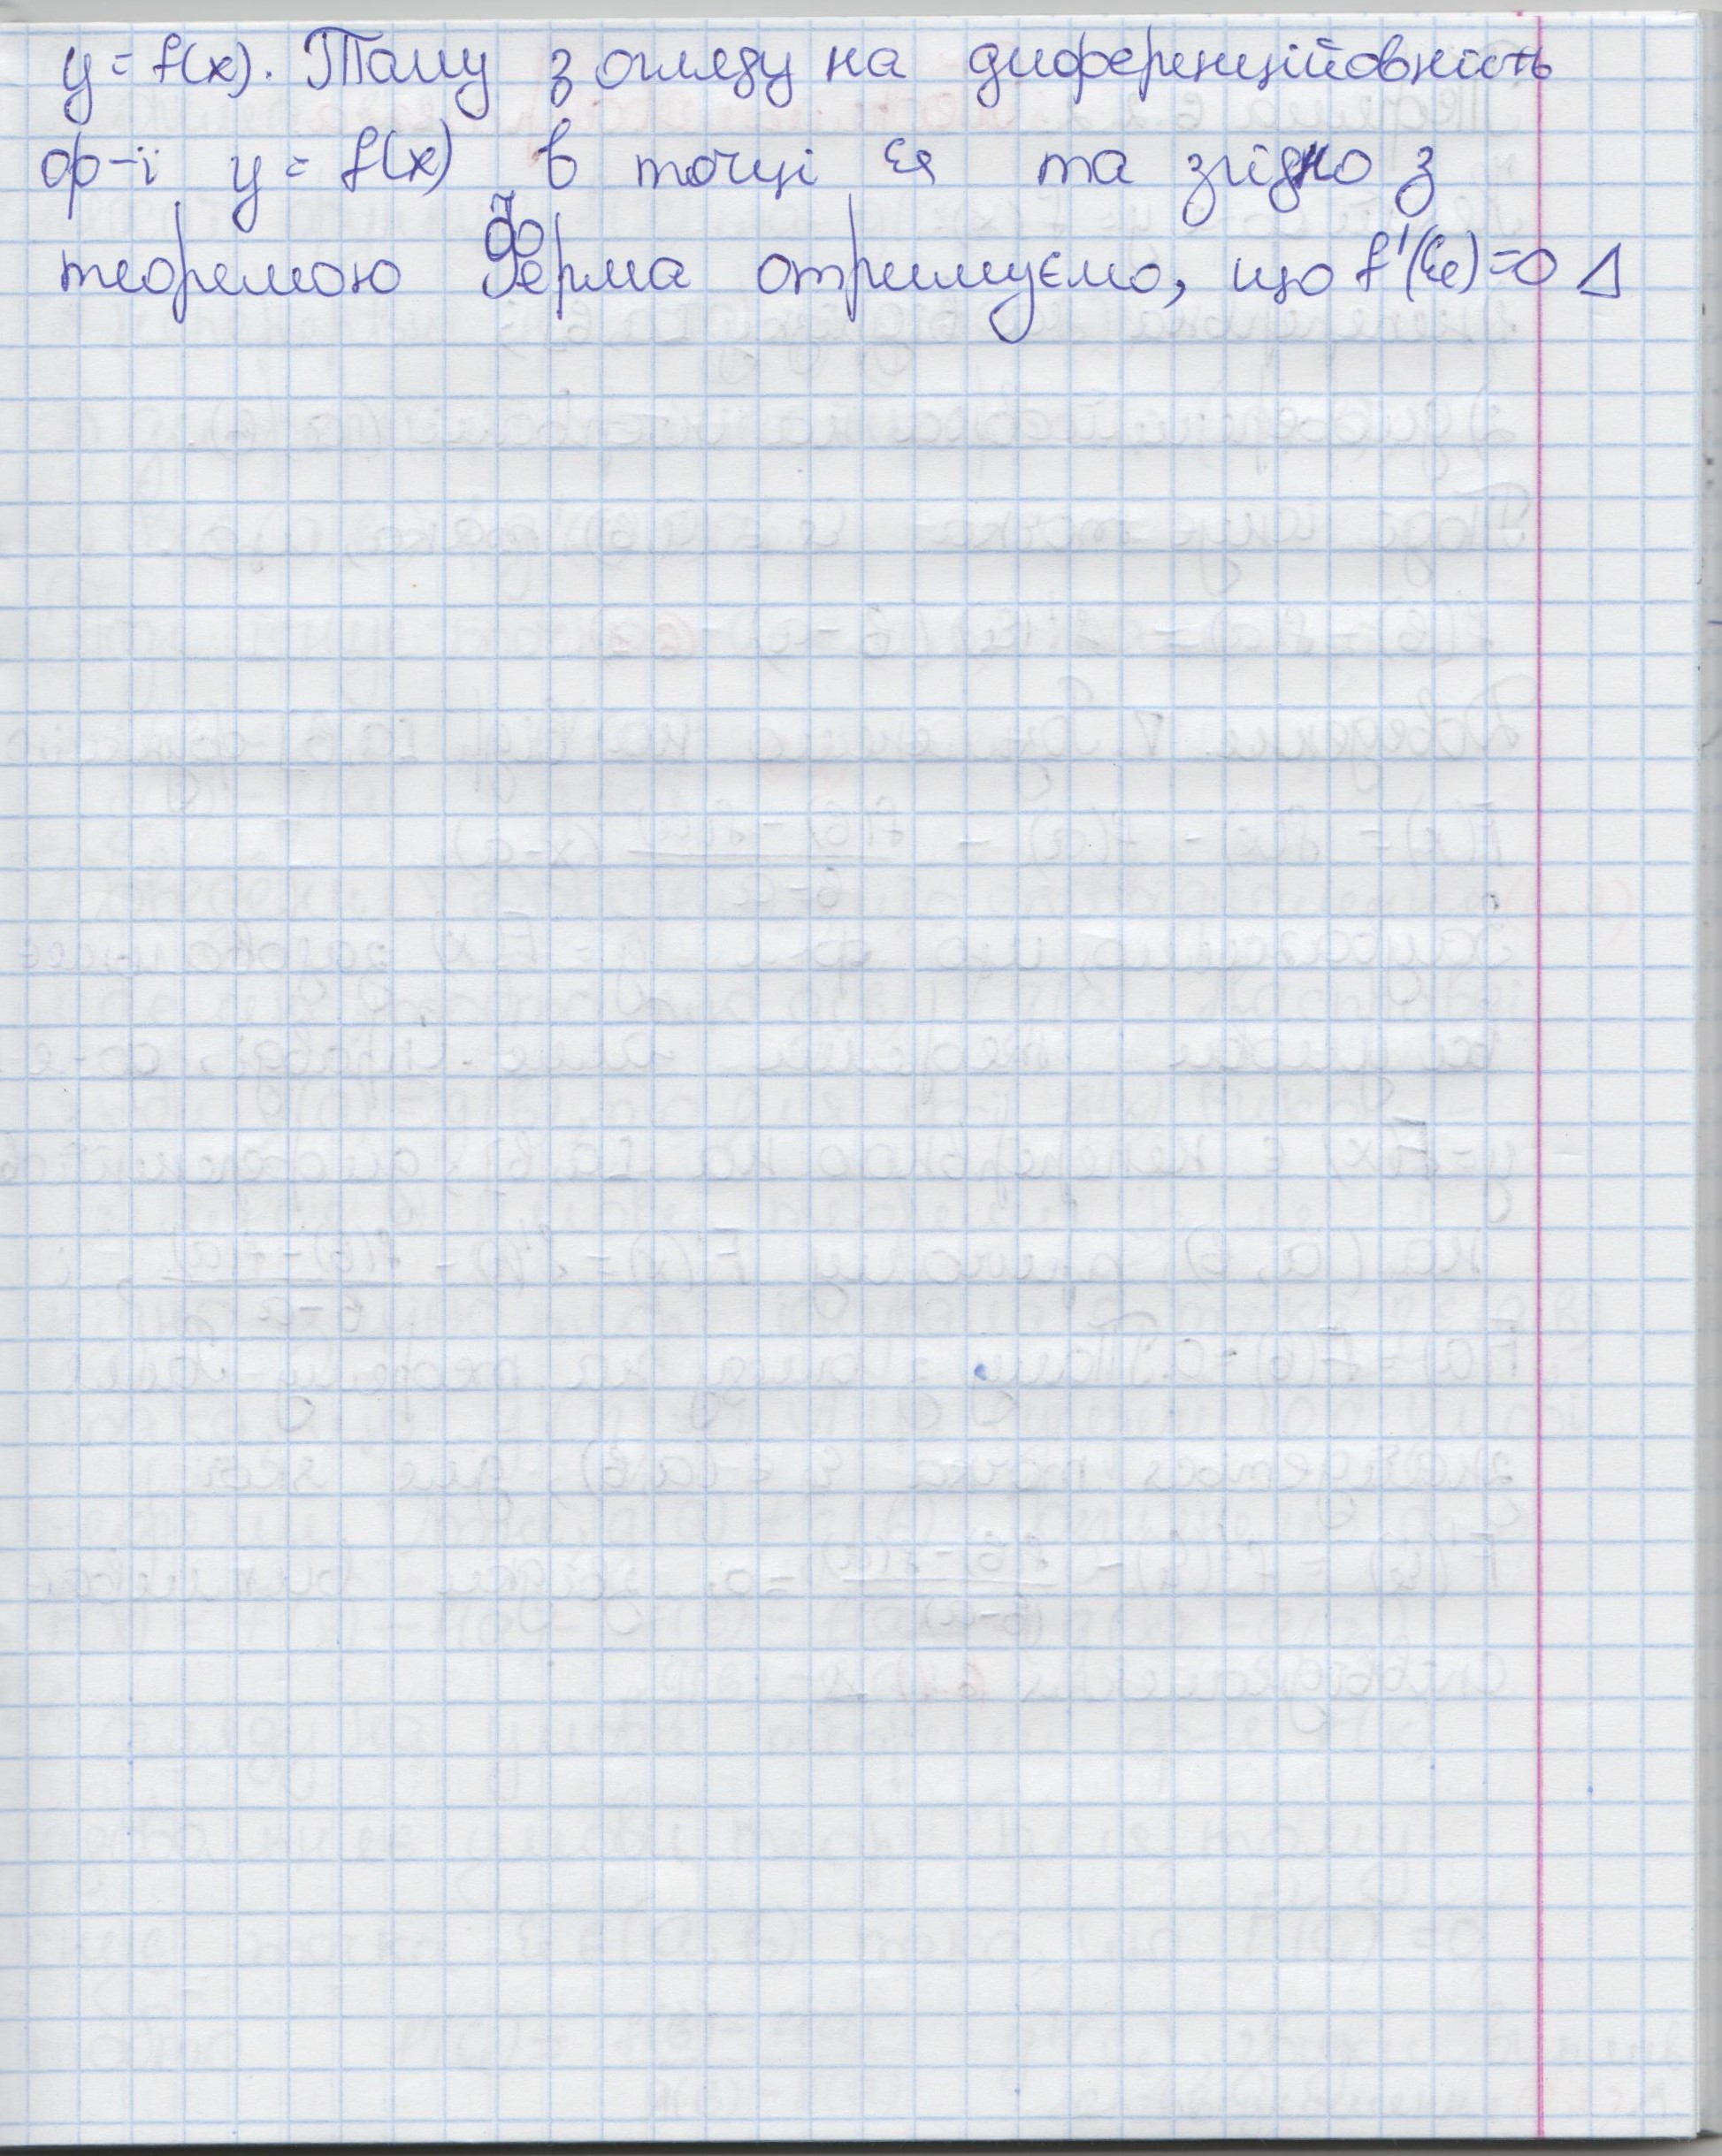 y = f(x). Тому з огляду на диференційовність
ф-ї y = f(x) в точці ξ та згідно з
теоремою Ферма отримуємо, що f'(ξ)=0 Δ